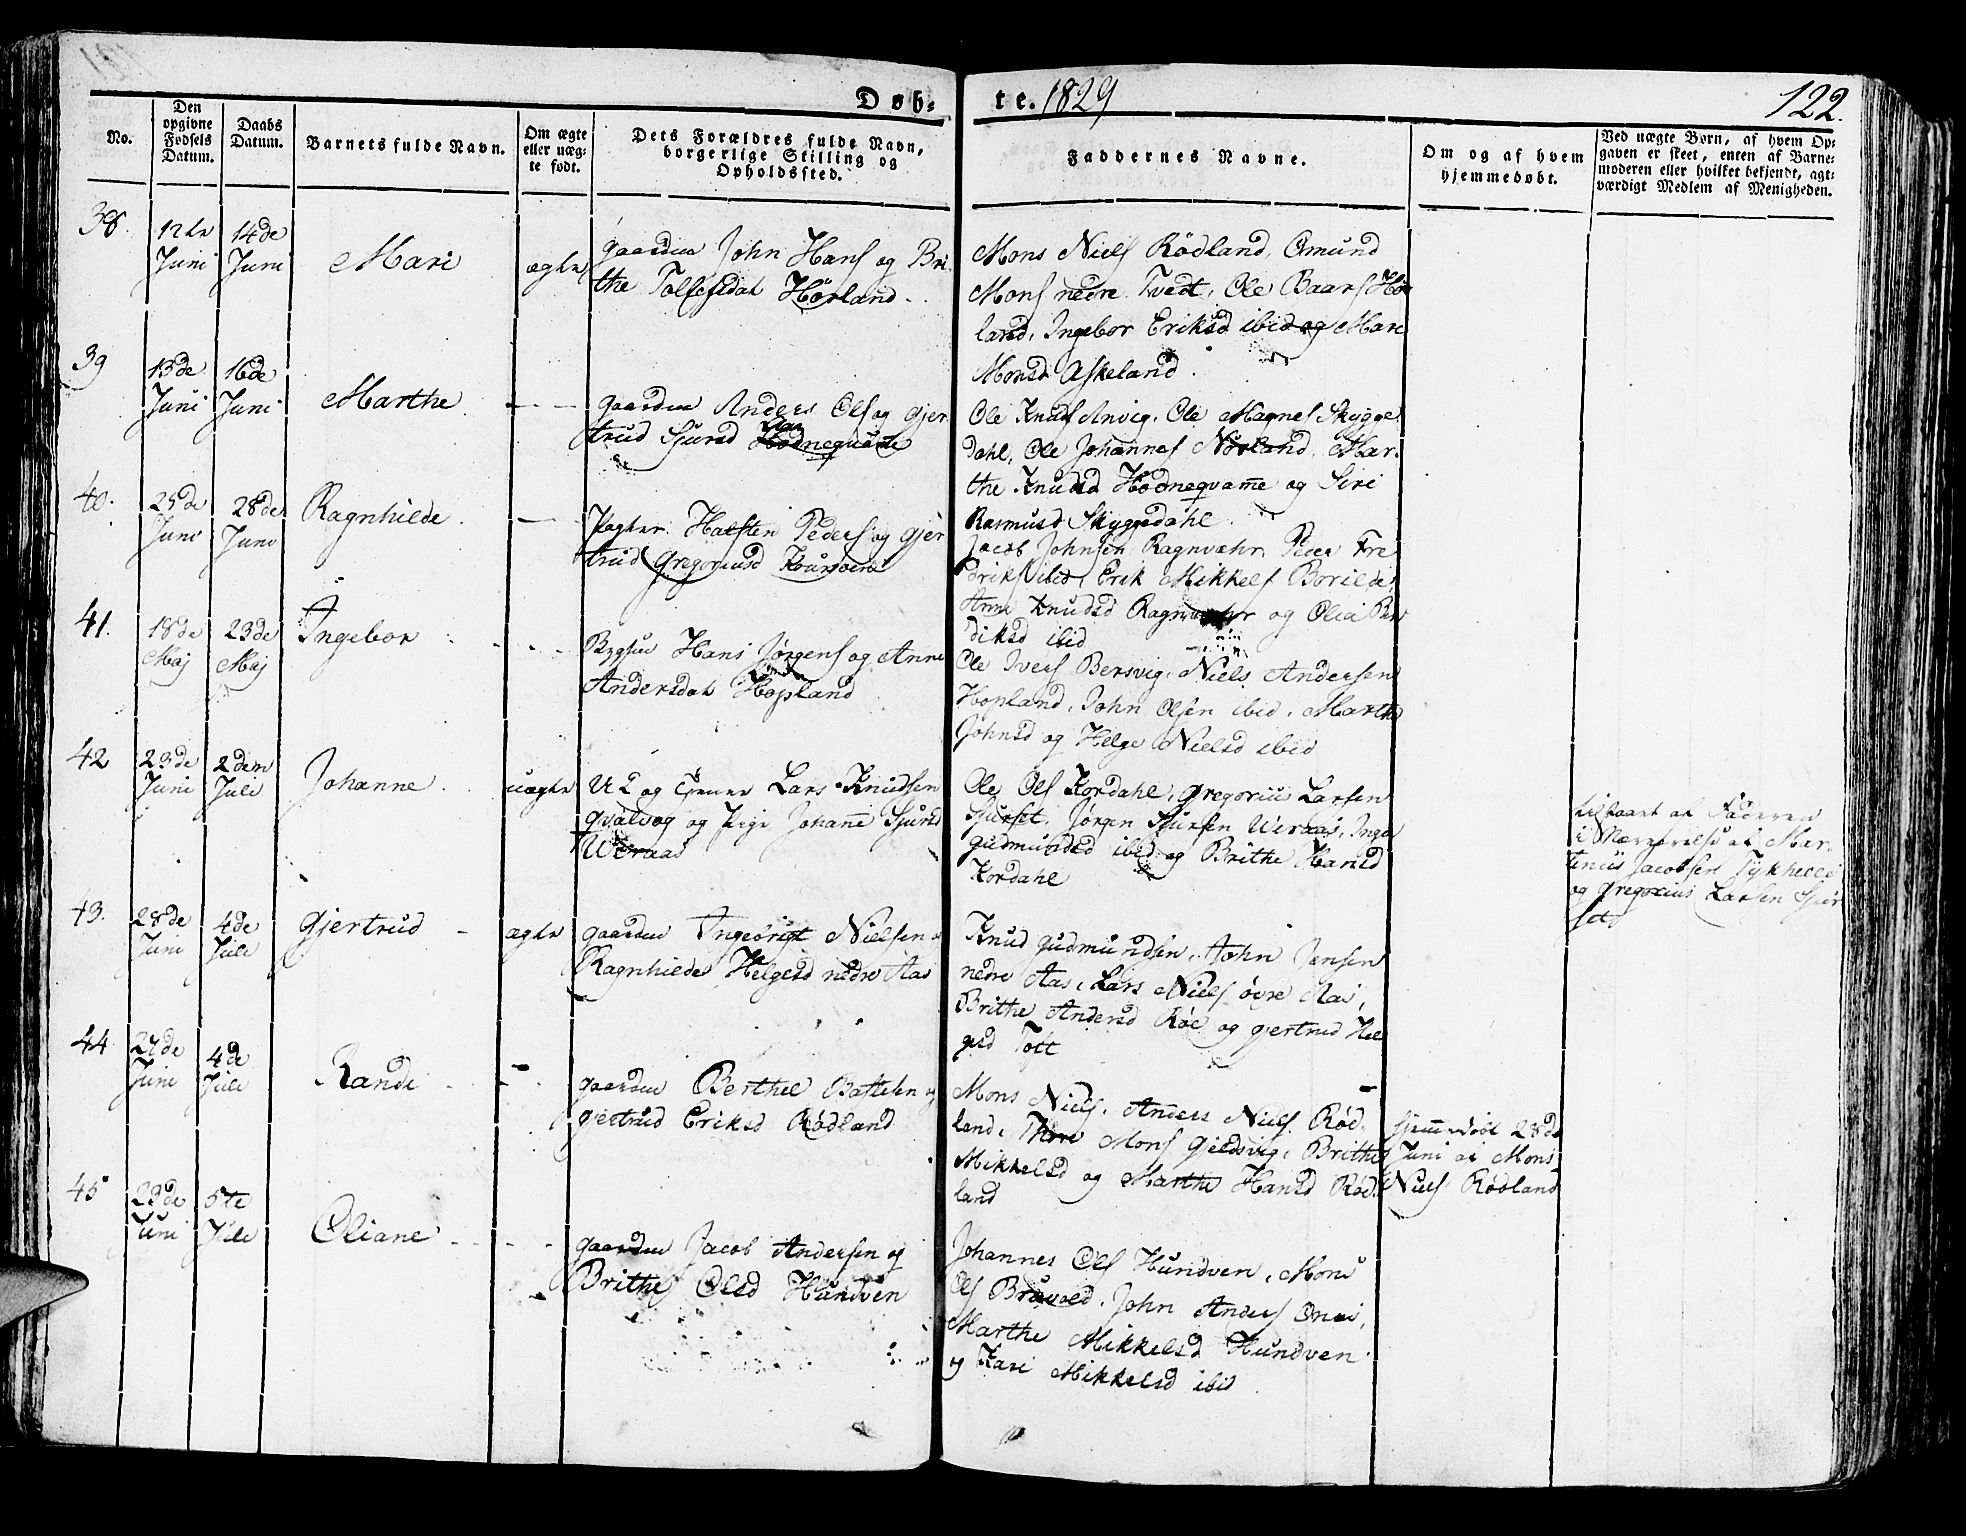 Døb-
te. 1829
122.
No.
Den opgivne Fødsels Datum.
Daabs Datum.
Barnets fulde Navn.
Om ægte eller uæg-te født.
Dets Forældres fulde Navn, borgerlige Stilling og Opholdssted.
Faddernes Navne.
Om og af hvem hjemmedøbt.
Ved uægte Børn, af hvem Op-gaven er skeet, enten af Barne-moderen eller hvilket bekjendt, agt-værdigt Medlem af Menigheden.
38.
12te Juni
14de Juni
Mari
ægte
gaardm John Hans og Bri
the Tollefsdat Hørland
Mons Niels Rødland, Omund
Mons nedre Tvedt, Ole Baars Hør
land, Ingebor Eriksd ibid og Mari
Monsd Askeland.
39
13de Juni
16de Juni
Marthe
gaardm Anders Ols og Gjer
trud Sjursd Hodneqvame
Ole Knuds Anvig, Ole Magnes Skygge
dahl, Ole Johannes Nörland, Mar
the Knudsd Hodneqvame og Siri
Rasmusd Skyggedahl.
40.
25de Juni
28de Juni
Ragnhilde
Halsten Peders og Gjer
trud Gregoriusd
Jacob Johnsen Ragnvahr, Peder Fre
driks ibid, Erik Mikkels Borilde,
Anne Knudsd og Olia
diksd ibid
41.
18de Maj
23de Maj
Ingebor
Bygsm Hans Jørgens og Anne
Andersdat Hopland
Ole Ivers Bersvig, Niels Andersen
Hopland, John Olsen ibid, Marthe
Johnsd og Helge Nielsd ibid
42
23de Juni
2den Juli
Johanne
uægte
U L og Lars Knudsen
Qvalvog og Pige Johane Sjursd
Weraas
Ole Ols Kordahl, Gregorius Larsen
Sjurset, Jørgen Sjursen Weraas, Inga
Gudmundsd ibid og Brithe Hansd
Kordahl
tilstaaet af Faderen
i Nærværelse af Mar
tinus Jacobsen
og Gregorius Larsen Sjur
set
43.
28de Juni
4de Juli
Gjertrud
ægte
gaardm Ingebrigt Nielsen og
Ragnhilde Helgesd nedre Aas
Knud Gudmundsen, John Jensen
nedre Aas, Lars Niels øvre Aas,
Brithe Andersd Røe og Gjertrud Hel
gesd Toft
44
27de Juni
4de Juli
Randi
gaardm Berthel Baftelsen og
Gjertrud Eriksd Rødland
Mons Niels, Anders Niels Rød
land, Mons Gieldsvig, Brithe
Mikkelsd og Marthe Hansd Rød
land
hjemmedøbt 28de
Juni af Mons
Niels Rødland
45
23de Juni
5te Juli
Oliane
gaardm Jacob Andersen og
Brithe Olsd Hundven
Johannes Ols Hundven, Mons
Ols, John Anders,
Marthe Mikkelsd Hundven
og Kari Mikkelsd ibid